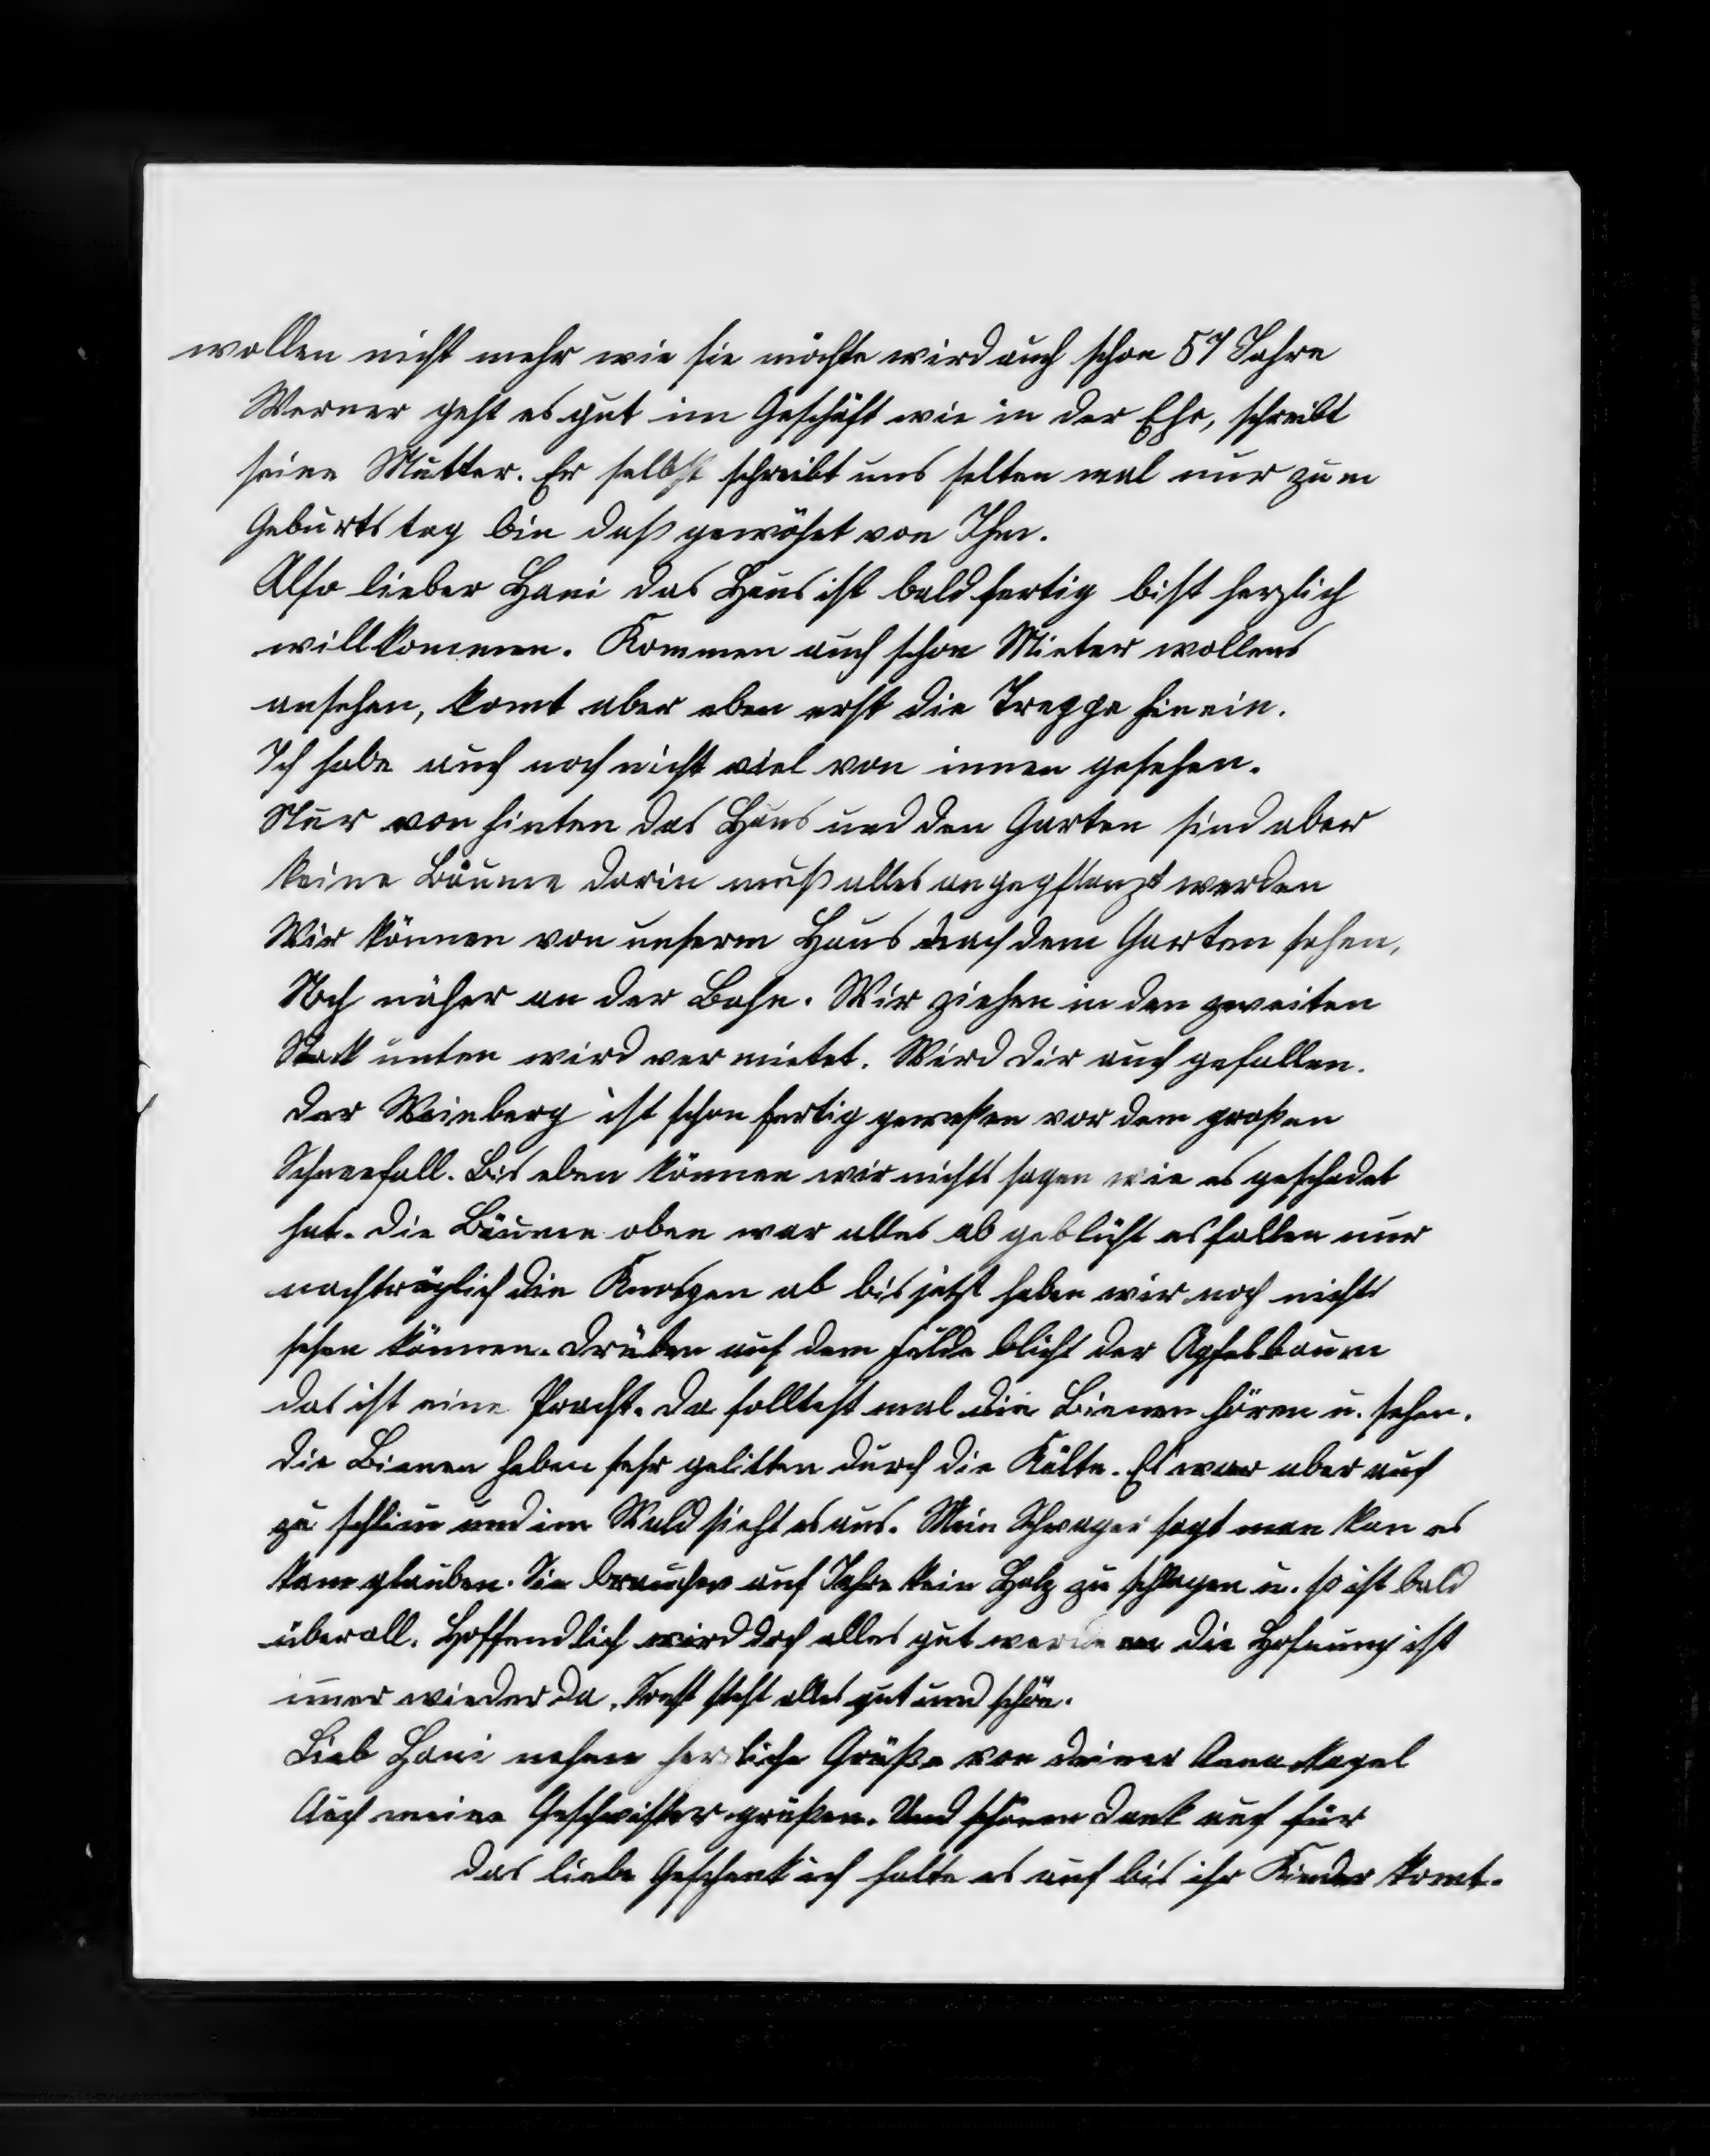 wollen nicht mehr wie sie möchte wird auch schon 57 Jahre
Werner geht es gut im Geschäft wie in der Ehe, schreibt
seine Mutter. Er selbst schreibt uns selten mal nur zum
Geburtstag bin daß gewöhnt von Ihm.
Also lieber Hani das Haus ist bald fertig bist herzlich
willkommen. Kommen auch schon Mieter wollens
ansehen, komt aber eben erst die Treppe hinein.
Ich habe auch noch nicht viel von innen gesehen.
Nur von hinten das Haus und den Garten sind aber
keine Bäume darin muß alles angepflanzt werden
Wir können von unserm Haus nach dem Garten sehen,
Noch näher an der Bahn. Wir ziehen in den zweiten
Stock unten wird vermietet. Wird dir auch gefallen.
Der Weinberg ist schon fertig gewesen vor dem großen
Schneefall. Bis eben können wir nichts sagen wie es geschadet
hat. Die Bäume oben war alles abgeblüht es fallen nur
nachträglich die Knospen ab bis jetzt haben wir noch nichts
sehen können. Drüben auf dem Felde blüht der Apfelbaum
das ist eine Pracht. Da solltest mal die Bienen hören u. sehen.
Die Bienen haben sehr gelitten durch die Kälte. Es war aber auch
zu schlim und im Wald sieht es aus. Mein Schwager sagt man kan es
kam glauben. Sie brauchen auf Jahre kein Holz zu schlagen u. so ist bald
überall. Hoffendlich wird doch alles gut werden die Hofnung ist
imer wieder da. Sonst steht alles gut und schön.
Lieb Hani nehme herzliche Grüße von deiner Anna Nagel
Auch meine Geschwister grüßen. Und schönen Dank auch für
das liebe Geschenk ich halte es auf bis ihr Kinder komt.